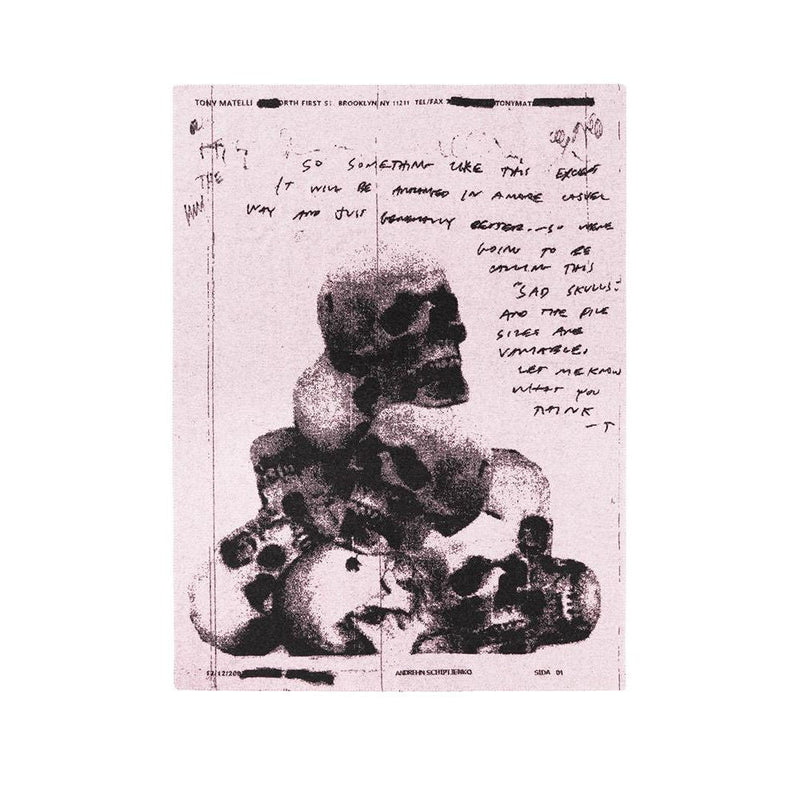 TONY MATELLI ORTH FIRST ST. BROOKLYN NY 11211 TEL/FAX TONYMAT
THE
SO SOMETHING LIKE THIS EXCEPT
IT WILL BE ARRANGED IN A MORE CASUAL
WAY AND JUST GENERALLY BETTER. - SO WERE
GOING TO BE
CALLING THIS
"SAD SKULLS"
AND THE FILE
SIZES ARE
VARIABLE.
LET ME KNOW
WHAT YOU
THINK
- T
12/12/200 ANDREHN SCHIPTJENKO SIDA 01